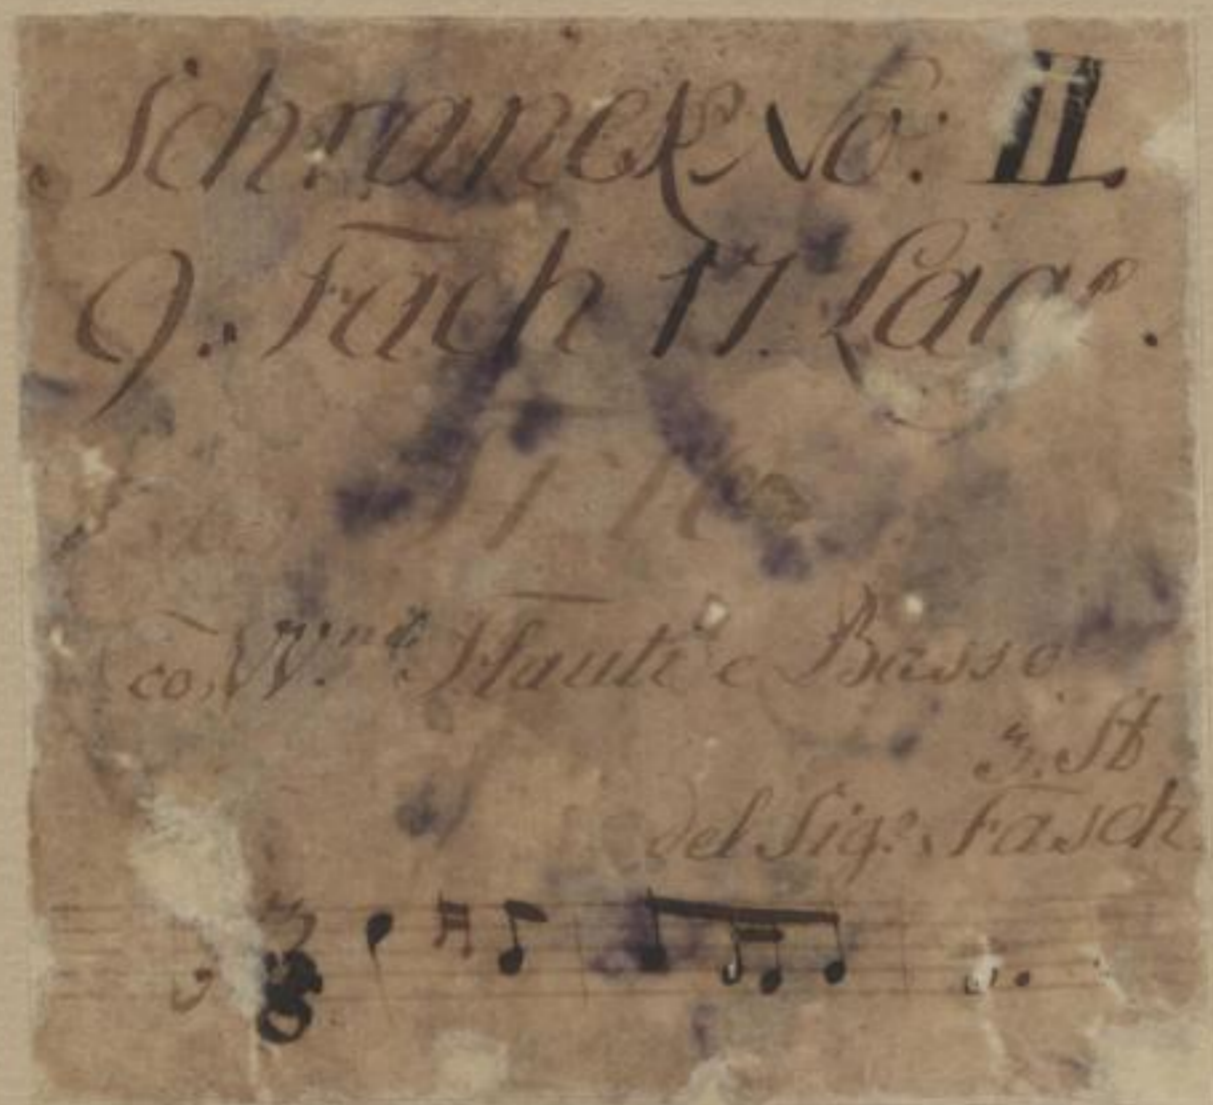 Schranck No: II.
9. Fach 17. Lage.
Trio
co V.no Flauti e Basso
3. St
del Sigr. Fasch.